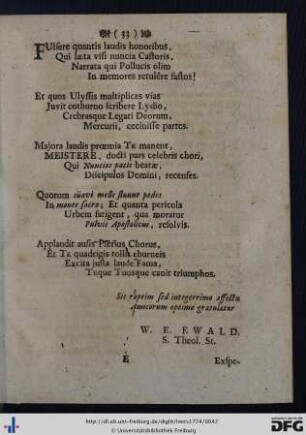 ( 33 )
FUlsere quantis laudis honoribus,
Qui læta visi nuncia Castoris,
Narrata qui Pollucis olim
In memores retulêre fastos!
Et quos Ulyssis multiplices vias
Juvit cothurno scribere Lydio,
Crebrasque Legati Deorum,
Mercurii, cecinisse partes.
Majora laudis prœmia TE manent,
MEISTERE, docti pars celebris chori,
Qui Nuncios pacis beatæ,
Discipulos Domini, recenses.
Quorum suavi melle fluunt pedes
In monte sacro; Et quanta pericula
Urbem fatigent, qua moratur
Pulvis Apostolicus, resolvis.
Applaudit ausis Pierius Chorus,
Et TE quadrigis tolli eburneis
Excita justa laude Fama,
Tuque Tuosque canit triumphos.
Sic raptim sed integerrimo affectu
Amicorum optimo gratulatur
W. E. EWALD.
S. Theol. St.
E
Exspe-
http://dl.ub.uni-freiburg.de/diglit/hoers1724/0042
© Universitätsbibliothek Freiburg
Gefördert durch
DFG